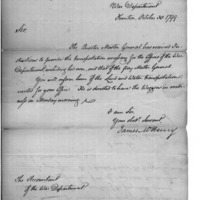 War Department
Trenton, October 30, 1799
Sir,
The Quarter Master General has received In-
structions to provide the transportation necessary for the Office of the War
Department including his own, and that of the Pay Master General.
You will inform him of the Land and Water transportation
wanted for your Office. He is directed to have the Waggons in read-
iness on Monday morning.
I am Sir,
Your obedt. Servant
James McHenry
The Accountant
of the War Department